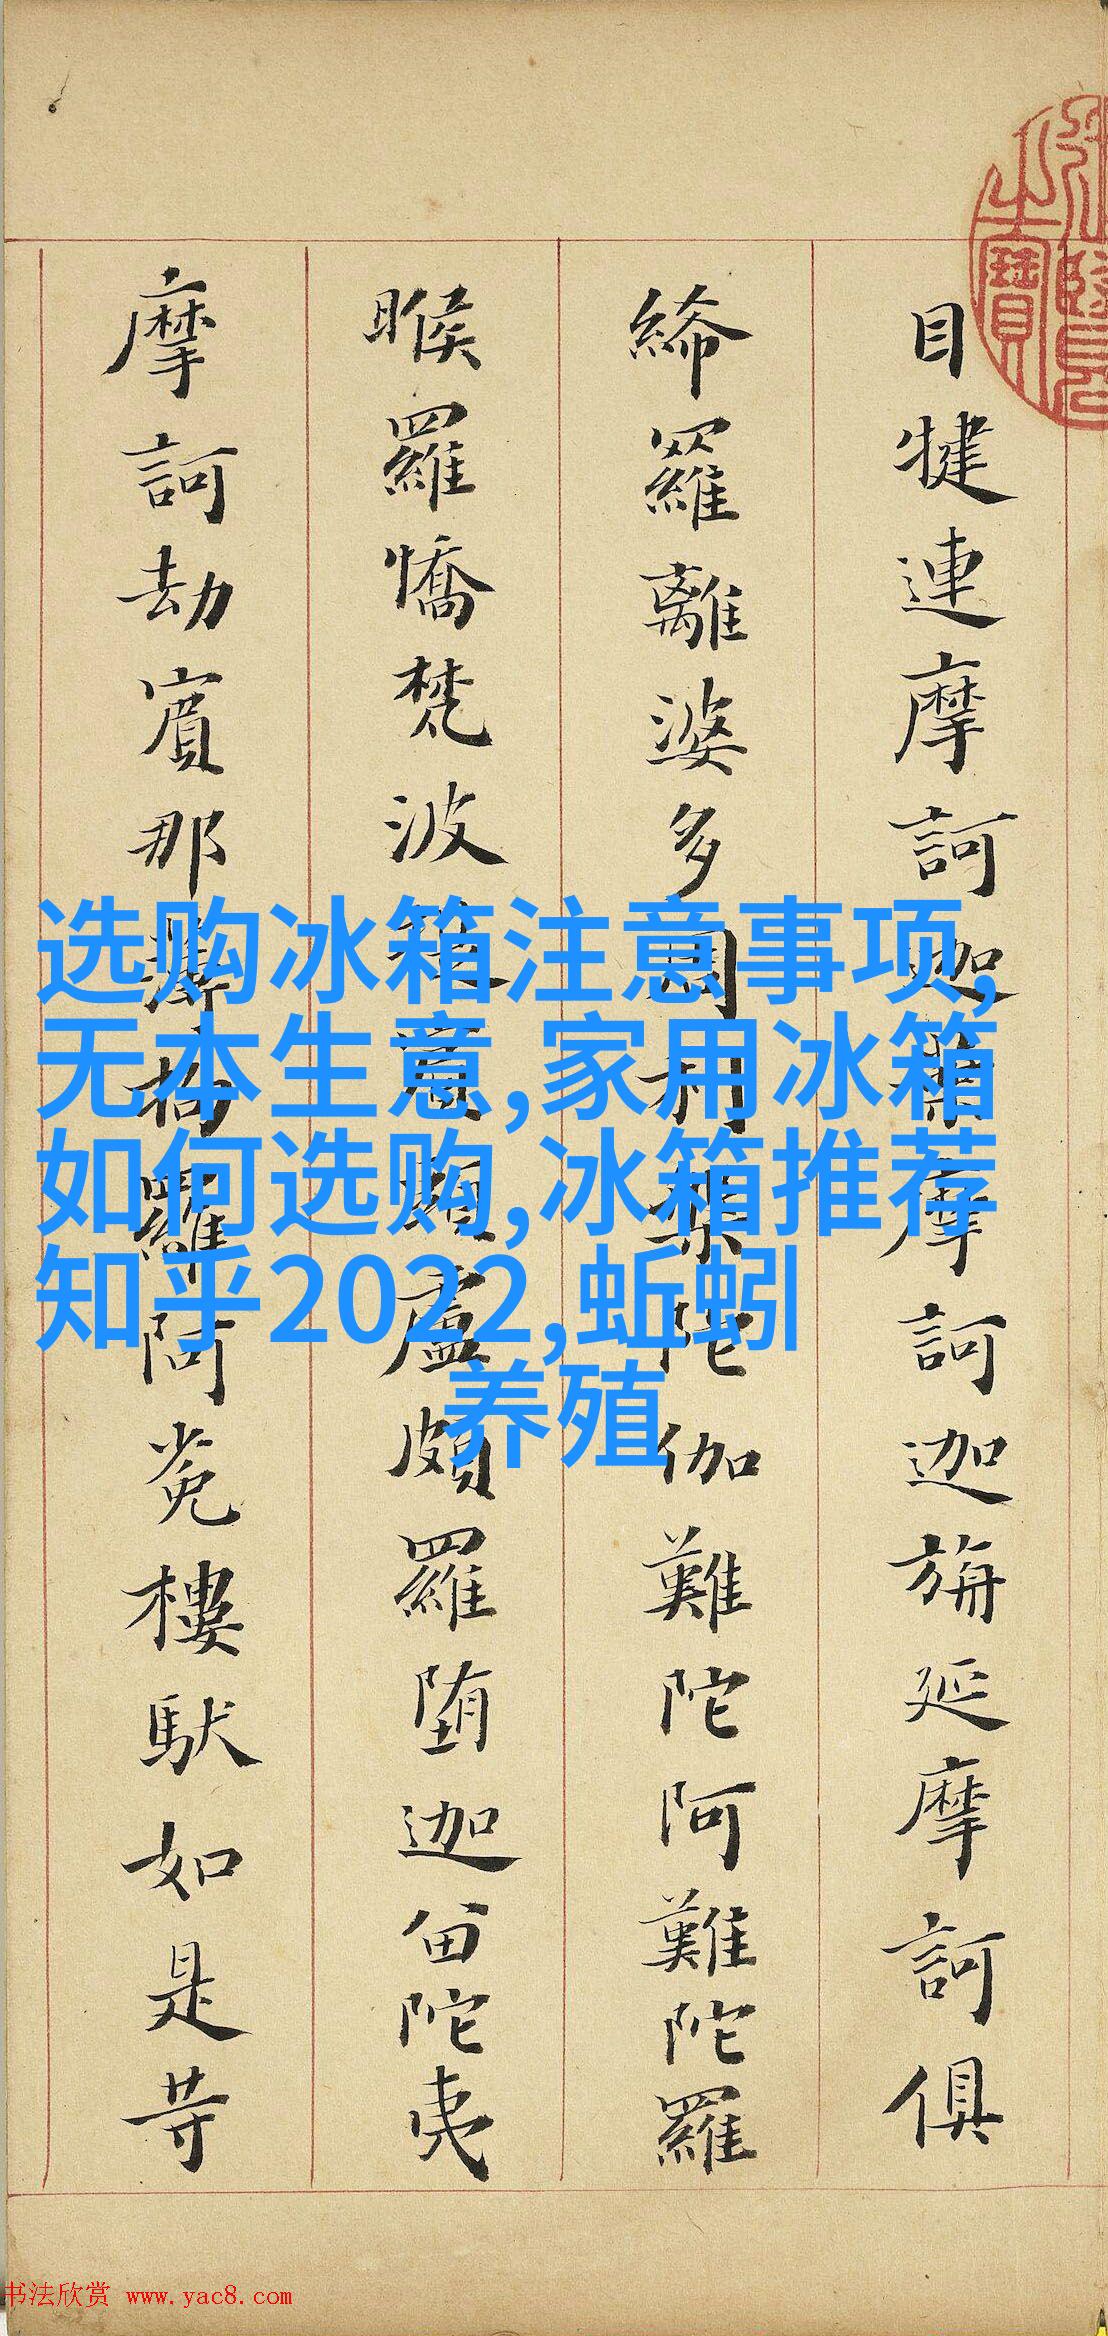 目犍連摩訶迦葉摩訶迦旃延摩訶俱
絺羅離婆多周利槃陀伽難陀阿難陀羅
睺羅憍梵波提賓頭盧頗羅堕迦留陀夷
摩訶劫賓那薄拘羅阿㝹樓馱如是等
选购冰箱注意事项,
无本生意,家用冰箱
如何选购,冰箱推荐
知乎2022,蚯蚓
养殖
书法欣赏 www.yac8.com